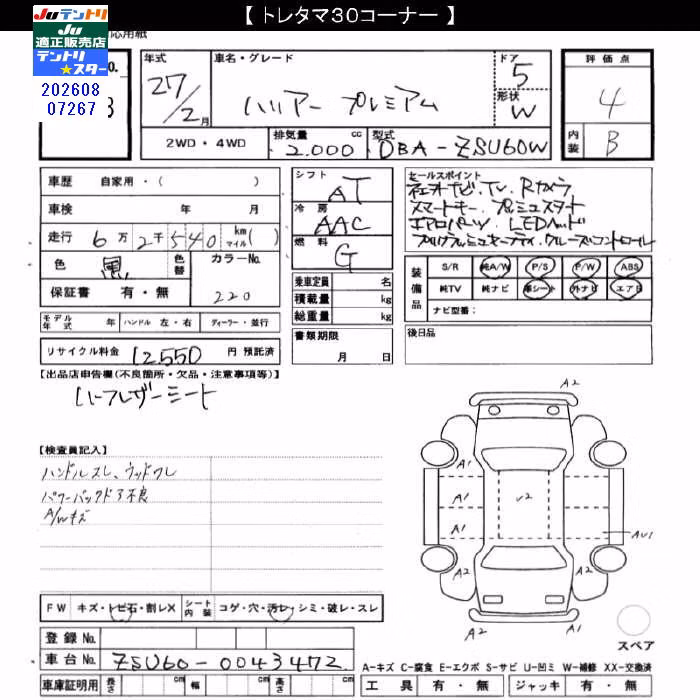 【 トレタマ30コーナー 】
JUテントリ
JU
適正販売店
テントリ
★スター
応用紙
No.
202608
07267
3
年式
27/2月
車名・グレード
ハリアー プレミアム
ドア
5
形状
W
評価点
4
内装
B
2WD・4WD
排気量 cc
2.000
型式
DBA-ZSU60W
車歴 自家用・( )
車検 年 月
走行 6万2千540 km マイル( )
色 黒 色替 カラーNo.
220
保証書 有・無
モデル年式 年 ハンドル 左・右 ディーラー・並行
リサイクル料金 12550 円 預託済
シフト
AT
冷房
AAC
燃料
G
乗車定員 名
積載量 kg
総重量 kg
書類期限
月 日
セールスポイント
スマートキー、プッシュスタート
エアロパーツ、LEDヘッド
装備品
S/R 純A/W P/S P/W ABS
純TV 純ナビ 革シート 外ナビ エアB
ナビ型番:
後日品
【出品店申告欄(不良箇所・欠品・注意事項等)】
ハーフレザーシート
【検査員記入】
ハンドルスレ、ウッドワレ
パワーバックドア不良
A/Wキズ
FW キズ・トビ石・割レX シート内装 コゲ・穴・汚レ・シミ・破レ・スレ
登録No.
車台No. ZSU60-0043472
車庫証明用 長さ cm 幅 cm 高さ cm
A2
A1
A1
A1
V2
AU1
A2
A2
A2
A2
スペア
A-キズ C-腐食 E-エクボ S-サビ U-凹ミ W-補修 XX-交換済
工具 有・無 ジャッキ 有・無